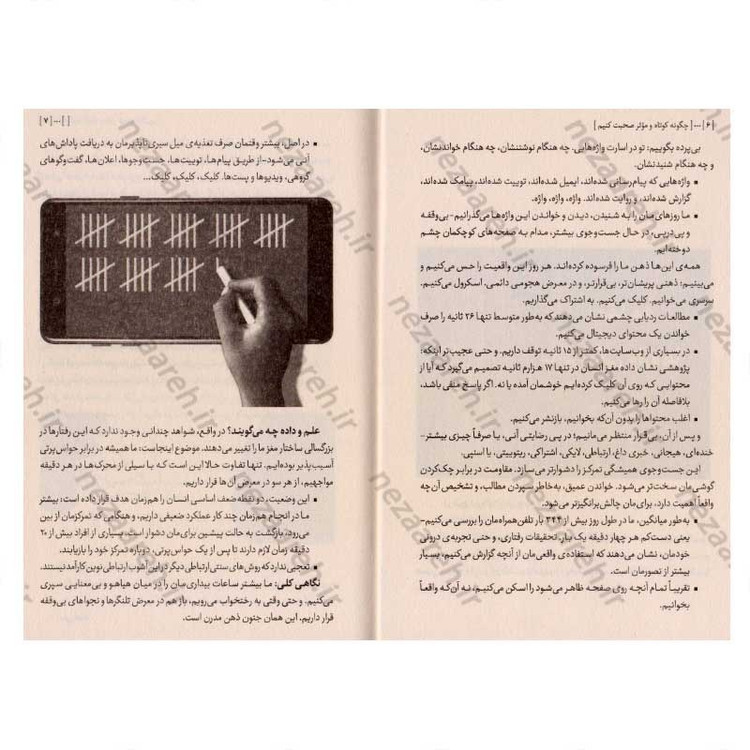 [ ۶ ]...[ چگونه کوتاه و مؤثر صحبت کنیم ]
بی‌پرده بگوییم: تو در اسارت واژه‌هایی. چه هنگام نوشتنشان، چه هنگام خواندنشان،
و چه هنگام شنیدنشان.
▪ واژه‌هایی که پیام‌رسانی شده‌اند، ایمیل شده‌اند، توییت شده‌اند، پیامک شده‌اند،
گزارش شده‌اند، و روایت شده‌اند. واژه، واژه، واژه.
▪ ما روزهای‌مان را به شنیدن، دیدن و خواندن این واژه‌ها می‌گذرانیم-بی‌وقفه
و پی‌درپی، در حال جست‌وجوی بیشتر، مدام به صفحه‌های کوچکمان چشم
دوخته‌ایم.
همه‌ی این‌ها ذهن ما را فرسوده کرده‌اند. هر روز این واقعیت را حس می‌کنیم و
می‌بینیم: ذهنی پریشان‌تر، بی‌قرارتر، و در معرض هجومی دائمی. اسکرول می‌کنیم.
سرسری می‌خوانیم. کلیک می‌کنیم. به اشتراک می‌گذاریم.
▪ مطالعات ردیابی چشمی نشان می‌دهند که به‌طور متوسط تنها ۲۶ ثانیه را صرف
خواندن یک محتوای دیجیتال می‌کنیم.
▪ در بسیاری از وب‌سایت‌ها، کمتر از ۱۵ ثانیه توقف داریم. و حتی عجیب‌تر اینکه:
پژوهشی نشان داده مغز انسان در تنها ۱۷ هزارم ثانیه تصمیم می‌گیرد که آیا از
محتوایی که روی آن کلیک کرده‌ایم خوشمان آمده یا نه. اگر پاسخ منفی باشد،
بلافاصله آن را رها می‌کنیم.
▪ اغلب محتواها را بدون آن‌که بخوانیم، بازنشر می‌کنیم.
و پس از آن، بی‌قرار منتظر می‌مانیم؛ در پی رضایتی آنی، یا صرفاً چیزی بیشتر-
خنده‌ای، هیجانی، خبری داغ، ارتباطی، لایکی، اشتراکی، ریتوییتی، یا اسنپی.
این جست‌وجوی همیشگی تمرکز را دشوارتر می‌سازد. مقاومت در برابر چک‌کردن
گوشی‌مان سخت‌تر می‌شود. خواندن عمیق، به‌خاطر سپردن مطالب، و تشخیص آن‌چه
واقعاً اهمیت دارد، برای‌مان چالش‌برانگیزتر می‌شود.
▪ به‌طور میانگین، ما در طول روز بیش از ۳۴۴ بار تلفن‌همراه‌مان را بررسی می‌کنیم-
یعنی دست‌کم هر چهار دقیقه یک بار. تحقیقات رفتاری، و حتی تجربه‌ی درونی
خودمان، نشان می‌دهند که استفاده‌ی واقعی‌مان از آنچه گزارش می‌کنیم، بسیار
بیشتر از تصورمان است.
▪ تقریباً تمام آنچه روی صفحه ظاهر می‌شود را اسکن می‌کنیم، نه آن‌که واقعاً
بخوانیم.
[ ]...[ ۷ ]
▪ در اصل، بیشتر وقتمان صرف تغذیه‌ی میل سیری‌ناپذیرمان به دریافت پاداش‌های
آنی می‌شود-از طریق پیام‌ها، توییت‌ها، جست‌وجوها، اعلان‌ها، گفت‌وگوهای
گروهی، ویدیوها و پست‌ها. کلیک، کلیک، کلیک...
علم و داده چه می‌گویند؟ در واقع، شواهد چندانی وجود ندارد که این رفتارها در
بزرگسالی ساختار مغز ما را تغییر می‌دهند. موضوع اینجاست: ما همیشه در برابر حواس‌پرتی
آسیب‌پذیر بوده‌ایم. تنها تفاوت حالا این است که با سیلی از محرک‌ها در هر دقیقه
مواجهیم، از هر سو در معرض آن‌ها قرار داریم.
▪ این وضعیت، دو نقطه‌ضعف اساسی انسان را هم‌زمان هدف قرار داده است: بیشتر
ما در انجام هم‌زمان چند کار عملکرد ضعیفی داریم، و هنگامی که تمرکزمان از بین
می‌رود، بازگشت به حالت پیشین برای‌مان دشوار است. بسیاری از افراد بیش از ۲۰
دقیقه زمان لازم دارند تا پس از یک حواس‌پرتی، دوباره تمرکز خود را بازیابند.
▪ تعجبی ندارد که روش‌های سنتی ارتباطی دیگر در این آشوب ارتباطی نوین کارآمد نیستند.
نگاهی کلی: ما بیشتر ساعات بیداری‌مان را در میان هیاهو و بی‌معنایی سپری
می‌کنیم. و حتی وقتی به رختخواب می‌رویم، باز هم در معرض تلنگرها و نجواهای بی‌وقفه
قرار داریم. این همان جنون ذهن مدرن است.
nezaareh.ir